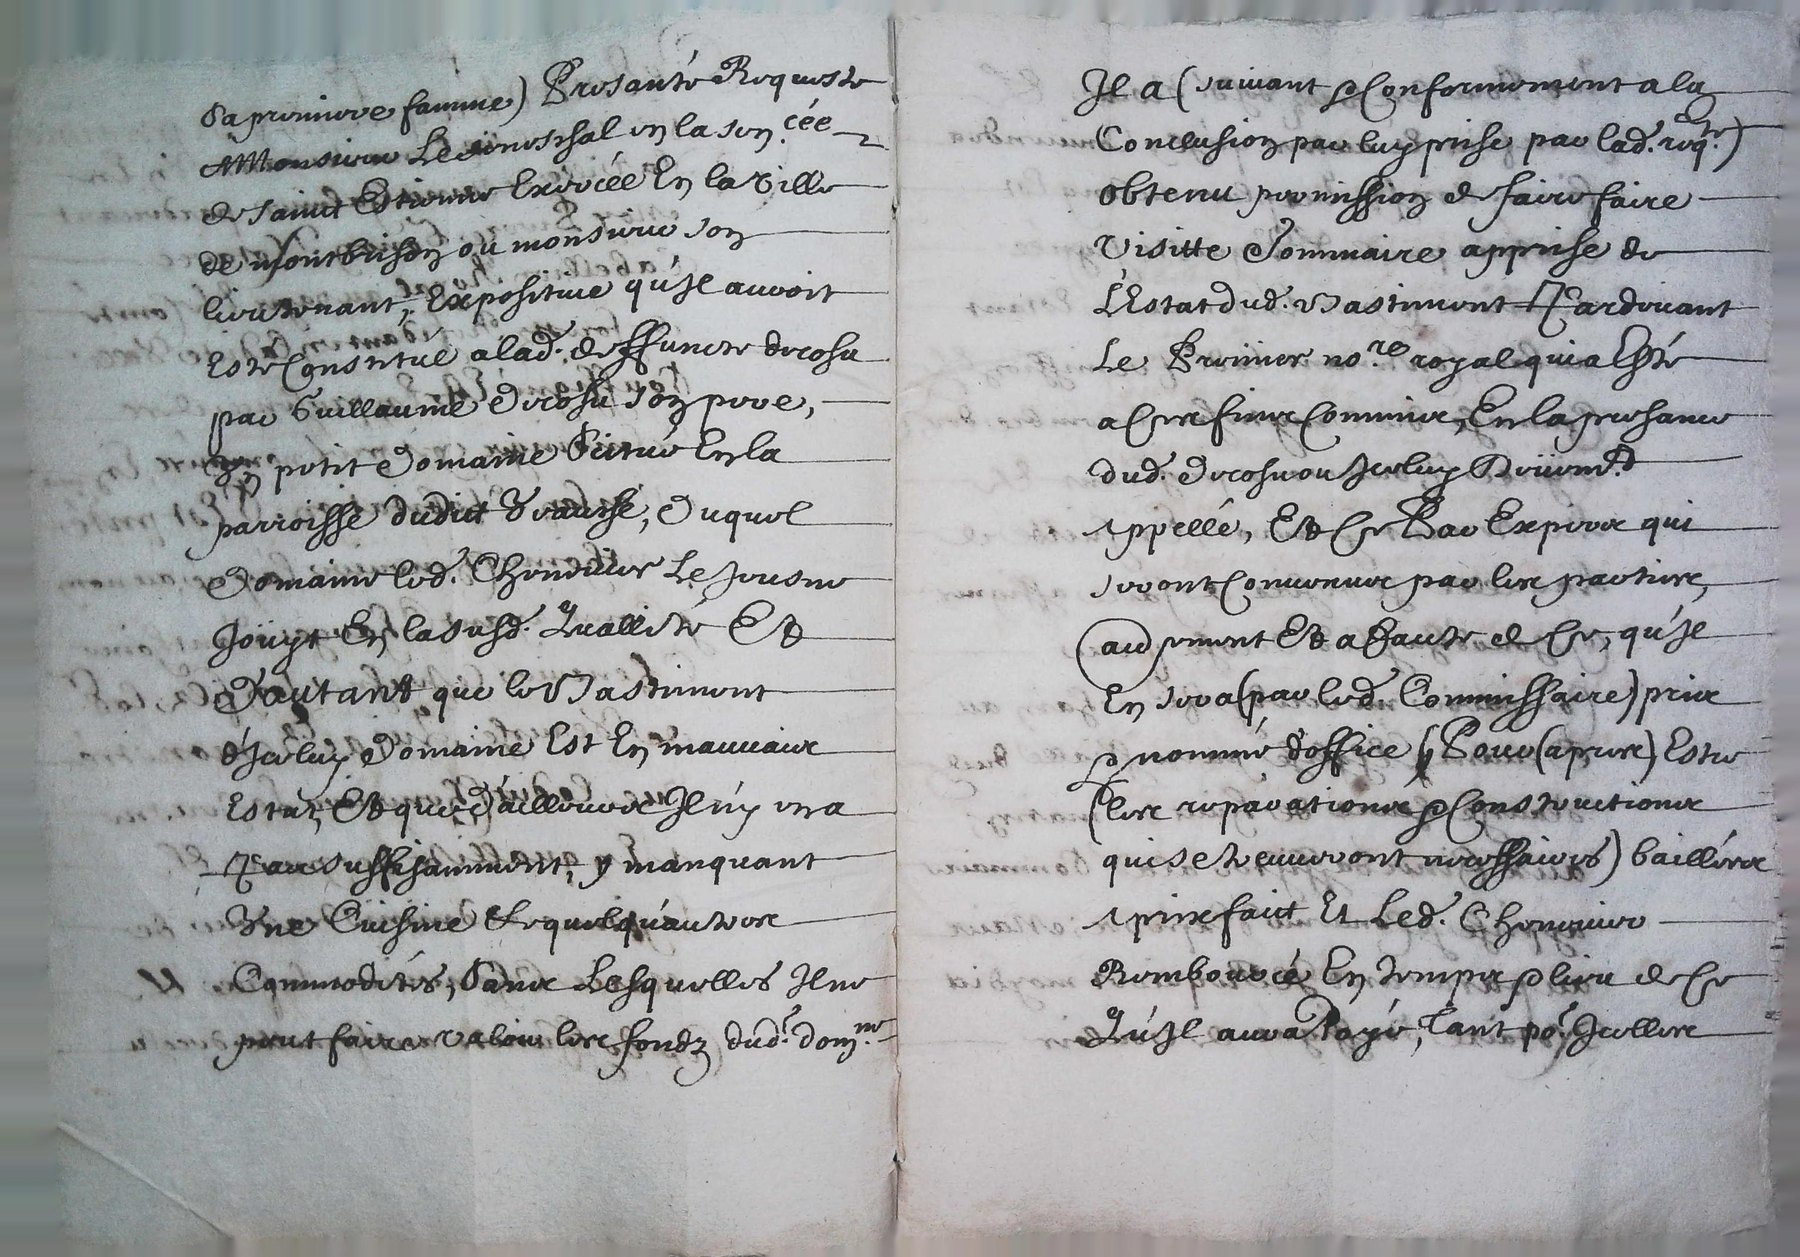 Sa premiere famme) Presanté Requeste
A Monsieur Le seneschal en la sen.cée
de sainct Estienne Exercée En la ville
de montbrison ou monsieur son
lieutenant, Expositive qu'Il auroit
Esté Constitué a lad. deffuncte
par Guillaume son pere,
Un petit Domaine Scitué En la
parroisse dudict, Duquel
Domaine led. Cheneuier Le Jeusne
Joüyt En la susd. Quallité Et
D'autant que le Bastiment
d'Iceluy Domaine Est En mauuais
Estat, Et que D'ailleurs Il n'y en a
Pas suffisamment, y manquant
Vne Cuisine Et quelqu'autres
Commodités, Sans Lesquelles Il ne
peut faire valoir les fondz dud. dom.ne
Il a (suiuant & Conformement a la
Conclusion par luy prise par lad. req.te)
obtenu permission de faire faire
Visitte Sommaire apprise de
L'Estat dud. Bastiment Pardeuant
Le Premier no.re royal qui a Esté
a Ces fins Commis, En la presance
dud. ou Iceluy Deüem.t
Appellé, Et Ce Par Experts qui
seront Conuenus par les parties,
autrement Et a Faute de Ce, qu'Il
En sera (par led. Commissaire) pris
& nommé d'office Pour (apres) Estre
(les reparations & Constructions
qui se treuueront necessaires) baillées
A prix fait Et Led. Cheneuier
Rembourcé En temps & lieu de Ce
Qu'Il aura Payé, Tant po.r Icelles